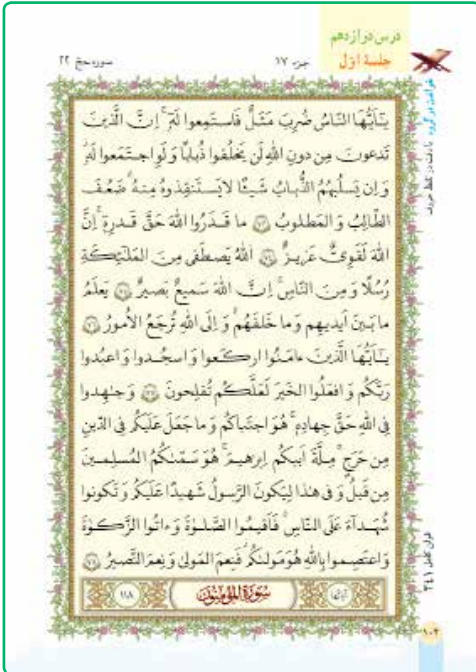 درس دوازدهم
جلسهٔ اوّل
جزء ۱۷
سوره حج ۲۲
یٰٓاَیُّهَا النّاسُ ضُرِبَ مَثَلٌ فَاستَمِعوا لَهٗٓ ۚ اِنَّ الَّذینَ
تَدعونَ مِن دونِ اللّٰهِ لَن یَخلُقوا ذُبابًا وَ لَوِ اجتَمَعوا لَهٗ ۖ
وَ اِن یَسلُبهُمُ الذُّبابُ شَیئًا لا یَستَنقِذوهُ مِنهُ ۚ ضَعُفَ
الطّالِبُ وَ المَطلوبُ ﴿۷۳﴾ ما قَدَرُوا اللّٰهَ حَقَّ قَدرِهٖٓ ۗ اِنَّ
اللّٰهَ لَقَویٌّ عَزیزٌ ﴿۷۴﴾ اَللّٰهُ یَصطَفی مِنَ المَلٰٓئِكَةِ
رُسُلًا وَ مِنَ النّاسِ ۚ اِنَّ اللّٰهَ سَمیعٌ بَصیرٌ ﴿۷۵﴾ یَعلَمُ
ما بَینَ اَیدیهِم وَ ما خَلفَهُم ۗ وَ اِلَی اللّٰهِ تُرجَعُ الاُمورُ ﴿۷۶﴾
یٰٓاَیُّهَا الَّذینَ ءامَنُوا اركَعوا وَ اسجُدوا وَ اعبُدوا
رَبَّكُم وَ افعَلُوا الخَیرَ لَعَلَّكُم تُفلِحونَ ﴿۷۷﴾ وَ جٰهِدوا
فِی اللّٰهِ حَقَّ جِهادِهٖ ۚ هُوَ اجتَباكُم وَ ما جَعَلَ عَلَیكُم فِی الدّینِ
مِن حَرَجٍ ۚ مِلَّةَ اَبیكُم اِبرٰهیمَ ۚ هُوَ سَمّٰىكُمُ المُسلِمینَ
مِن قَبلُ وَ فی هٰذا لِیَكونَ الرَّسولُ شَهیدًا عَلَیكُم وَ تَكونوا
شُهَدآءَ عَلَی النّاسِ ۚ فَاَقیمُوا الصَّلوٰةَ وَ ءاتُوا الزَّكوٰةَ
وَ اعتَصِموا بِاللّٰهِ هُوَ مَولٰىكُم ۖ فَنِعمَ المَولیٰ وَ نِعمَ النَّصیرُ ﴿۷۸﴾
آیاتها
سُورَةُ المُؤمِنُونَ
۱۱۸
قرآن کامل ۳۴۱
۱۰۲